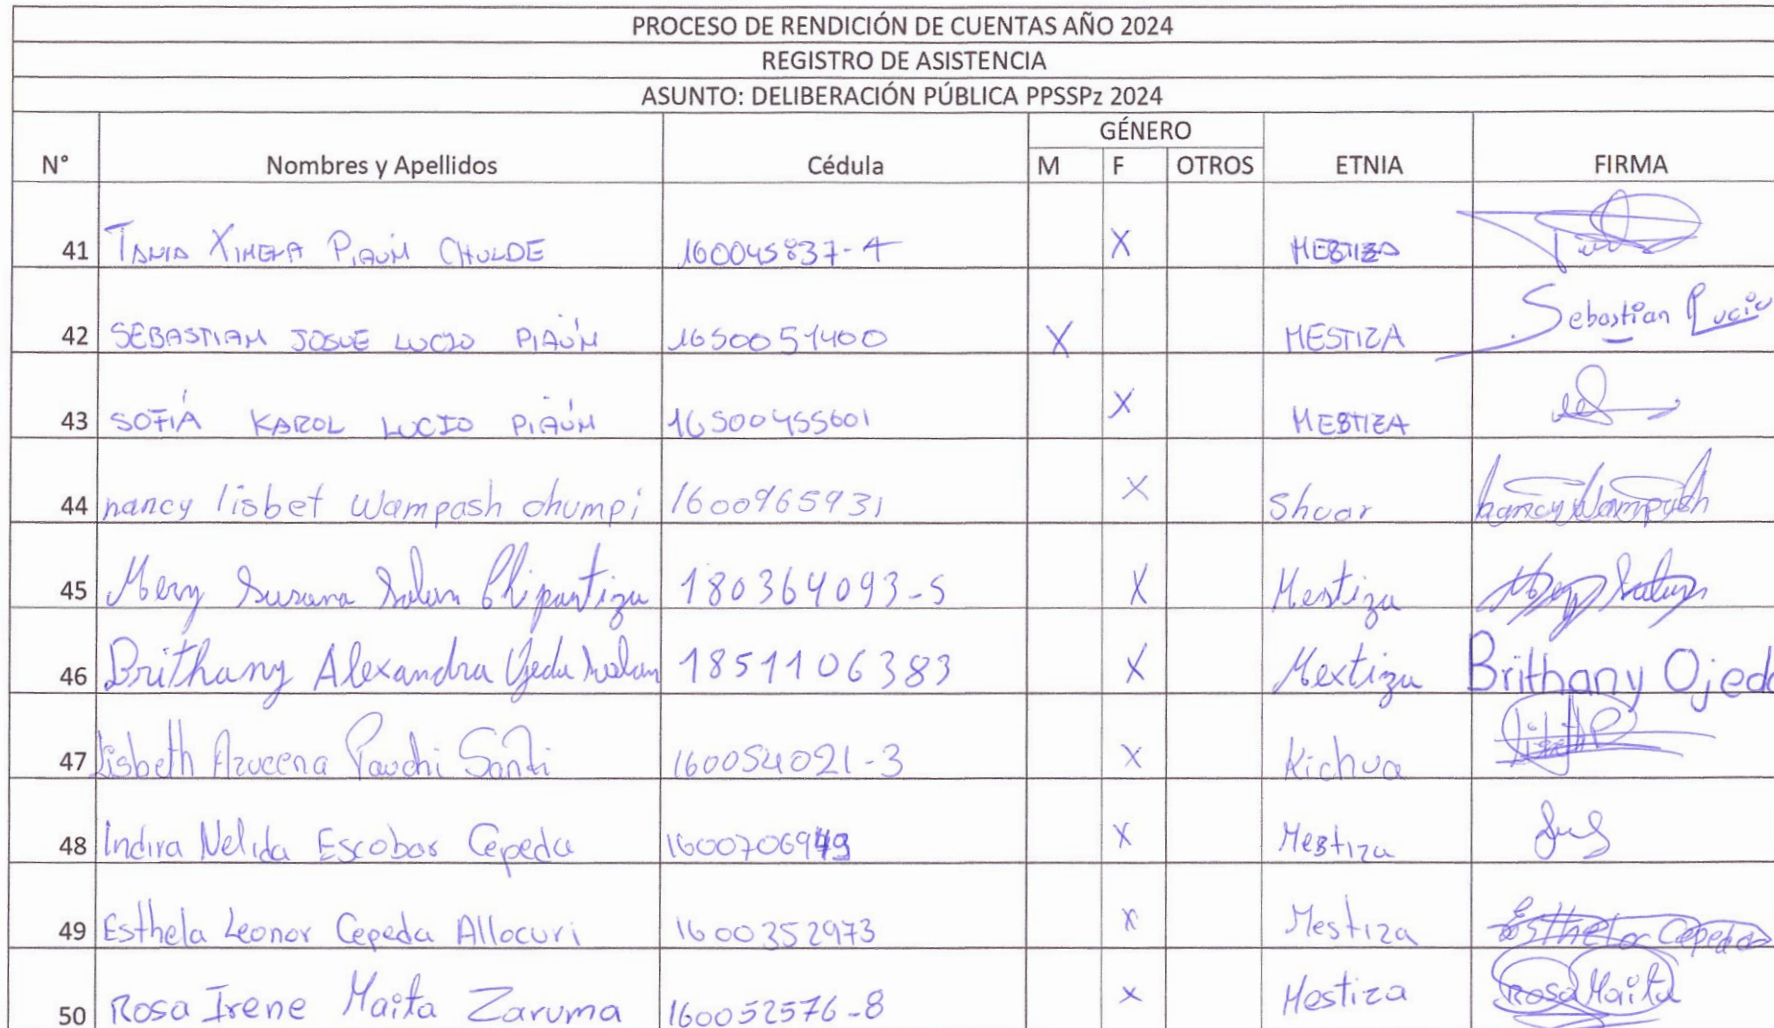 PROCESO DE RENDICIÓN DE CUENTAS AÑO 2024
REGISTRO DE ASISTENCIA
ASUNTO: DELIBERACIÓN PÚBLICA PPSSPz 2024
GÉNERO
N° Nombres y Apellidos Cédula M F OTROS ETNIA FIRMA
41 TANIA XIMENA PIAÚN CHULDE 160045837-4 X MESTIZO
42 SEBASTIAN JOSUE LUCIO PIAÚN 1650051400 X MESTIZA Sebastian Lucio
43 SOFIÁ KAROL LUCIO PIAÚN 16500455601 X MESTIZA
44 nancy lisbet Wampash chumpi 1600965931 X Shuar nancy Wampash
45 Mery Susana Chipantiza 180364093-5 X Mestiza Mery
46 Brithany Alexandra Ojeda 1851106383 X Mextiza Brithany Ojeda
47 Lisbeth Azucena Santi 160054021-3 X Kichua
48 Indira Nelida Escobar Cepeda 16007069 X Mestiza
49 Esthela Leonor Cepeda Allocuri 1600352973 X Mestiza Esthela Cepeda
50 Rosa Irene Maita Zaruma 160052576-8 X Mestiza Rosa Maita